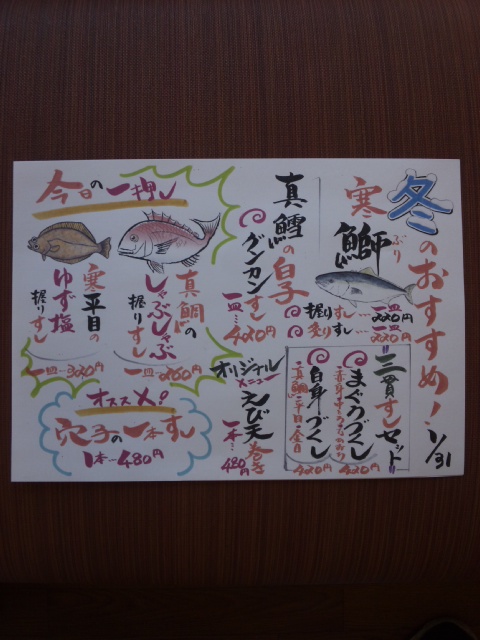 冬のおすすめ！
1/31
寒鰤
ぶり
握りすし…一皿…220円
炙りすし…一皿…220円
三貫すしセット!!
まぐろづくし
420円
白身づくし
420円
真鱈の白子
グンカンすし
一皿…420円
オリジナル
メニュー
えび天巻き
一本…480円
今日の一押し
真鯛の
しゃぶしゃぶ
握りすし
一皿…260円
寒平目の
ゆず塩
握りすし
一皿…320円
オススメ！
穴子の一本すし
1本…480円